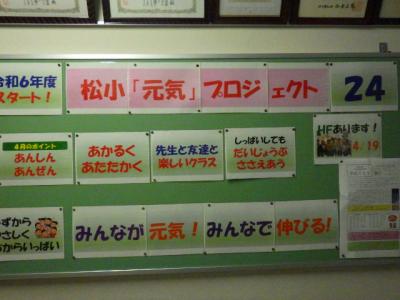 令和6年度
スタート!
松小「元気」プロジェクト 24
4月のポイント
あんしん
あんぜん
あかるく
あたたかく
先生と友達と
楽しいクラス
しっぱいしても
だいじょうぶ
ささえあう
HFあります!
4/19
みずから
やさしく
ちからいっぱい
みんなが 元気! みんなで 伸びる!